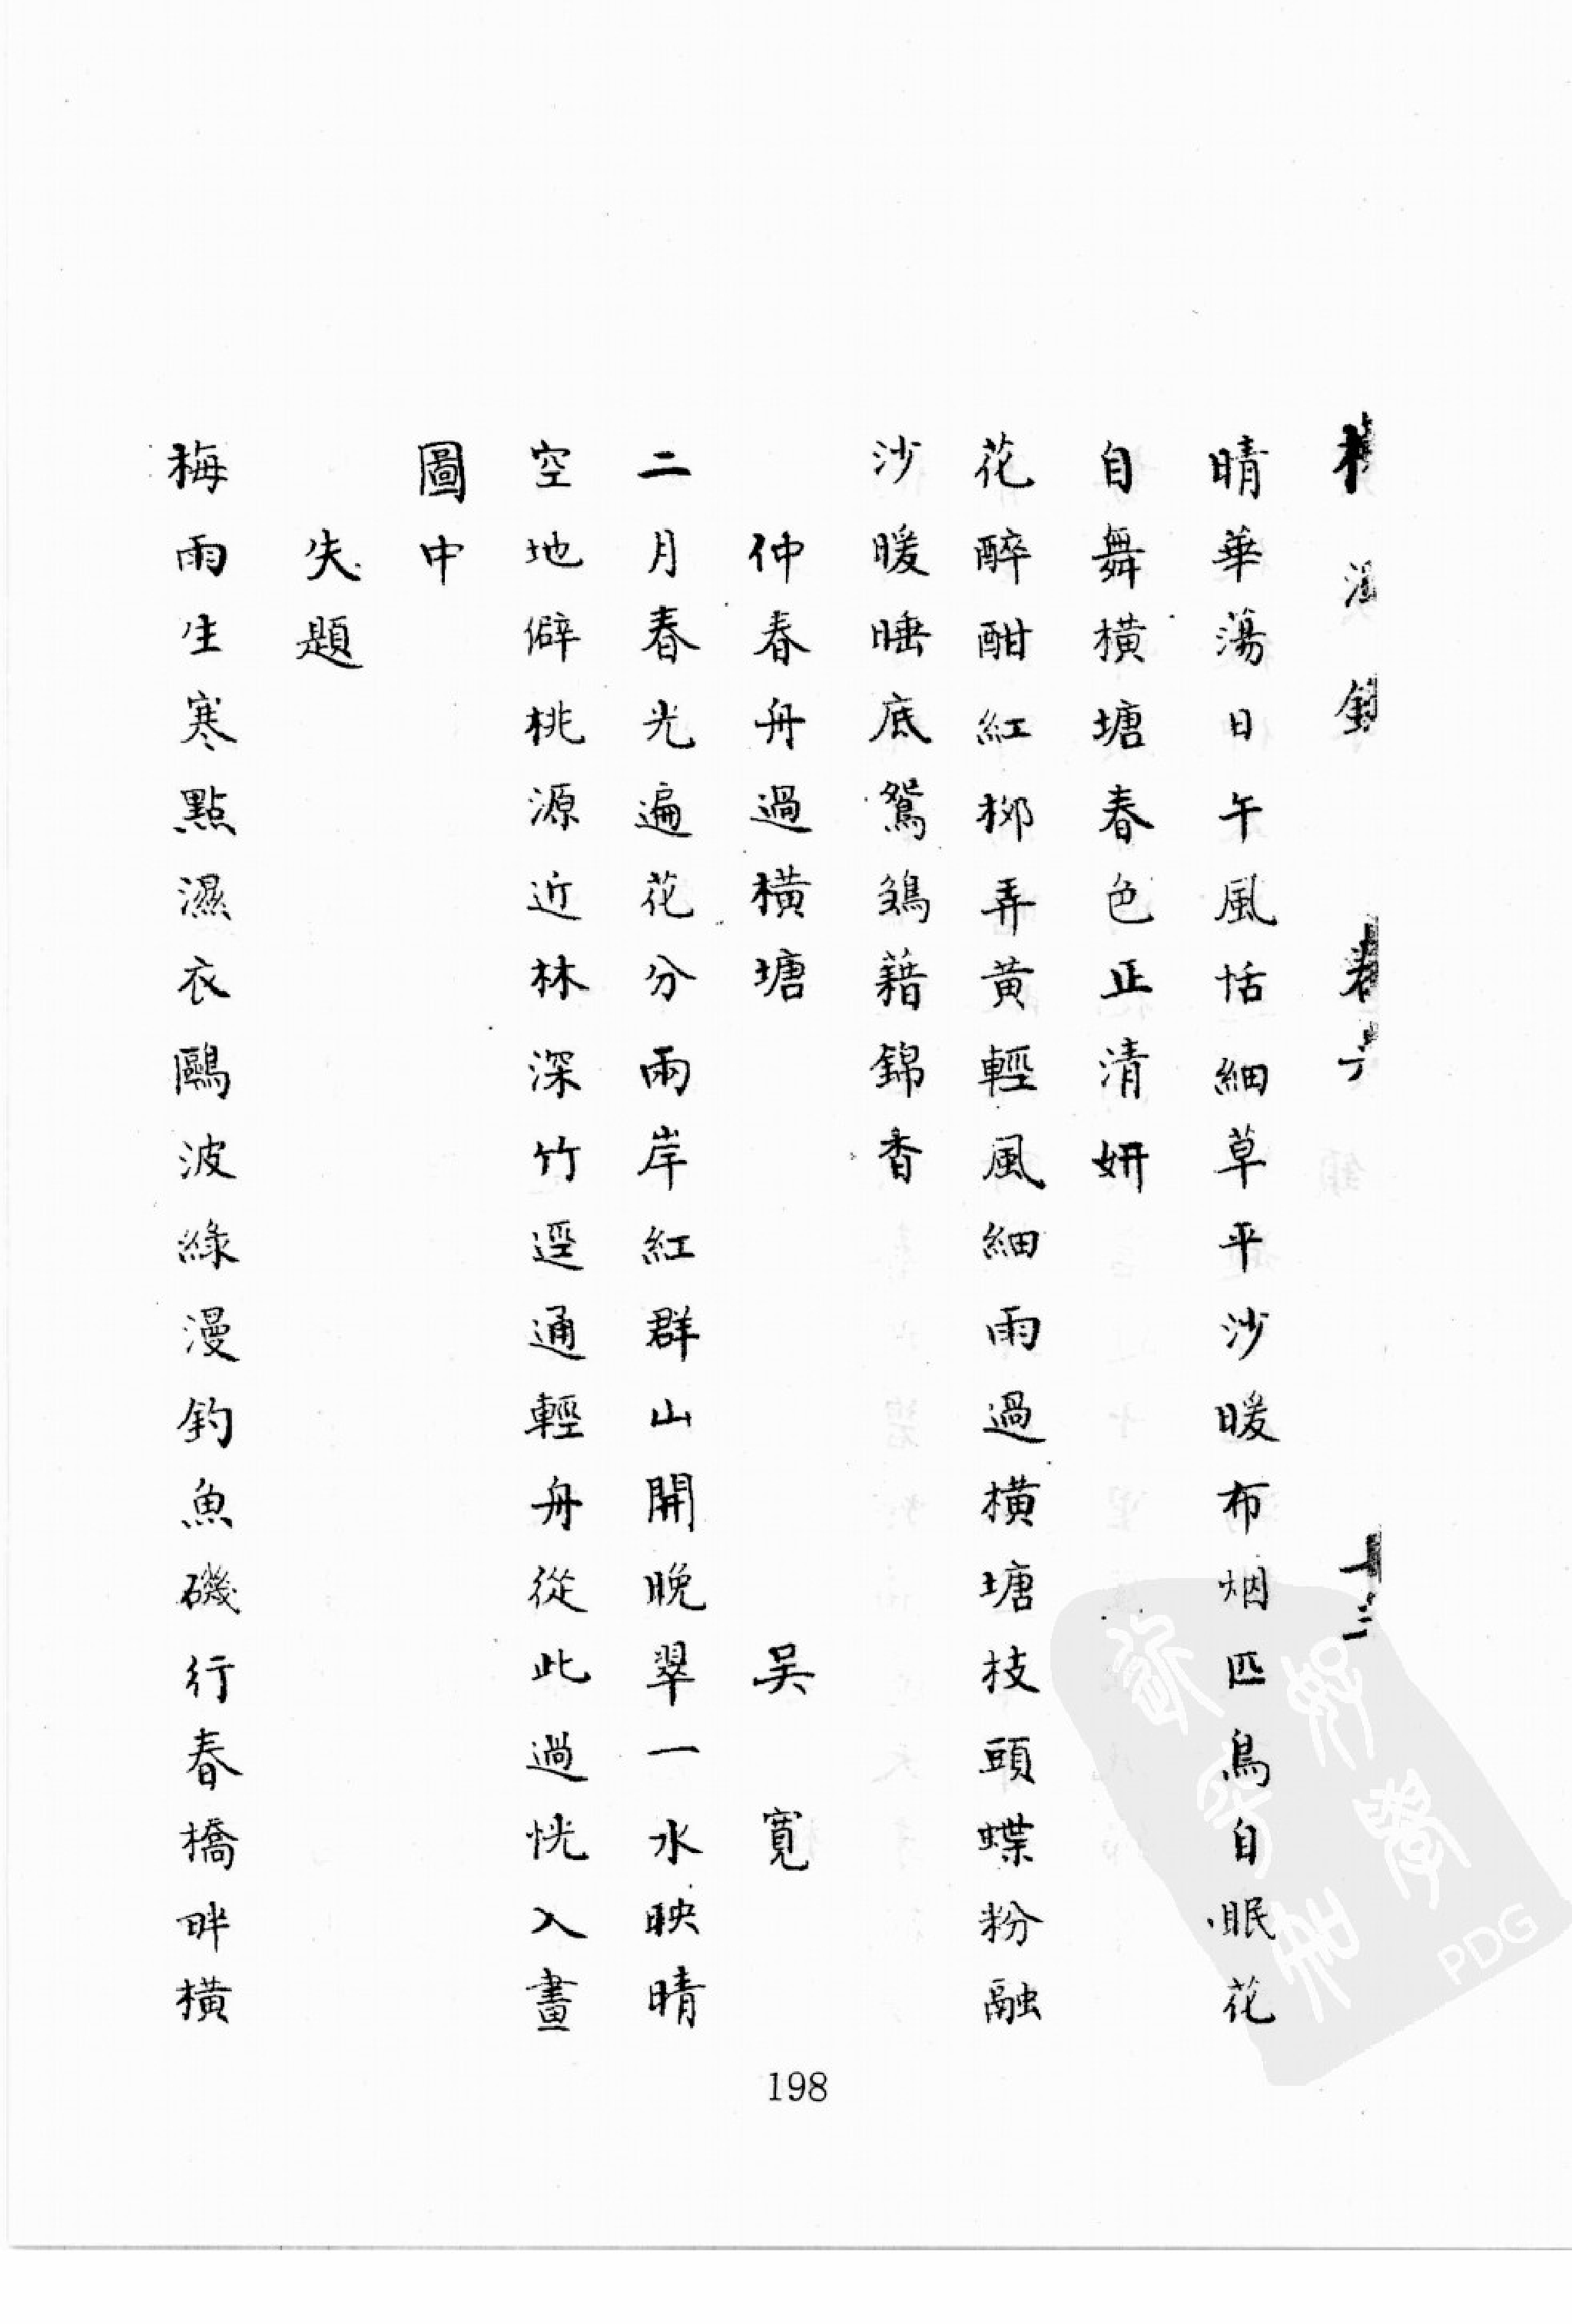 橫溪錄 卷六 十三
晴華蕩日午風恬細草平沙暖布烟匹鳥自眠花
自舞橫塘春色正清妍
花醉酣紅柳弄黃輕風細雨過橫塘枝頭蝶粉融
沙暖睡底鴛鴦藉錦香
仲春舟過橫塘 吳寬
二月春光遍花分兩岸紅群山開晚翠一水映晴
空地僻桃源近林深竹逕通輕舟從此過恍入畫
圖中
失題
梅雨生寒點濕衣鷗波綠漫釣魚磯行春橋畔橫
198
PDG